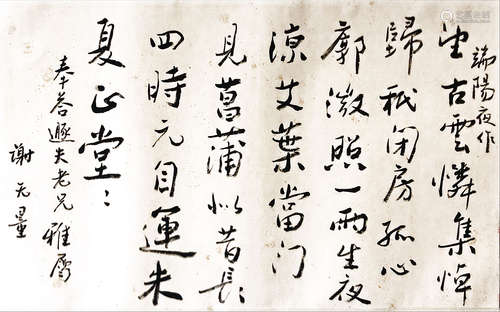 端陽夜作
望古雲憐集悼
歸祇閉房孤心
廓微照一雨生夜
涼艾葉當門
見菖蒲似昔長〻
四時元自運朱
夏正堂〻
奉答遯夫老兄雅属
謝无量